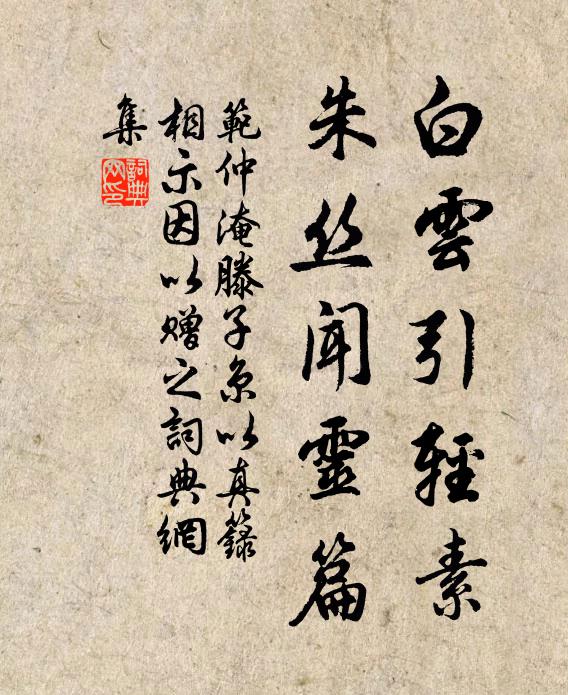 白雲引輕素
朱丝闻靈篇
範仲淹滕子京以真籙
相示因以赠之詞典網
集
詞典網印